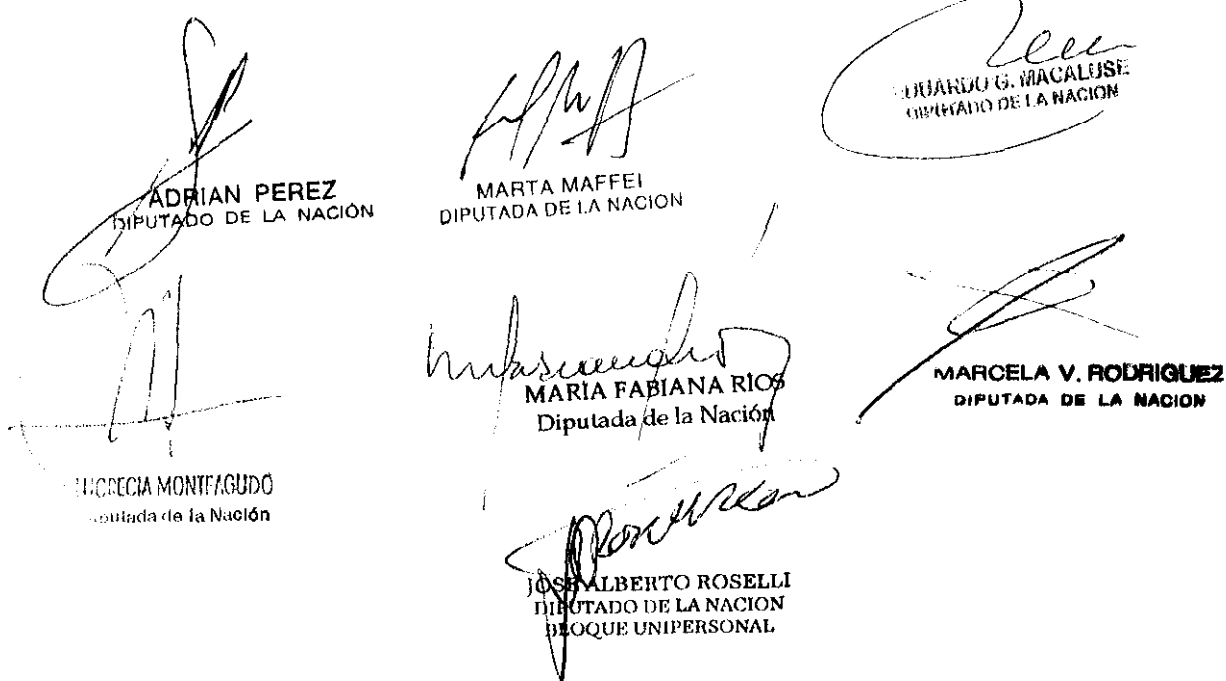 ADRIAN PEREZ
DIPUTADO DE LA NACIÓN
MARTA MAFFEI
DIPUTADA DE LA NACION
EDUARDO G. MACALUSE
DIPUTADO DE LA NACION
LUCRECIA MONTEAGUDO
Diputada de la Nación
MARIA FABIANA RIOS
Diputada de la Nación
MARCELA V. RODRIGUEZ
DIPUTADA DE LA NACION
JOSE ALBERTO ROSELLI
DIPUTADO DE LA NACION
BLOQUE UNIPERSONAL